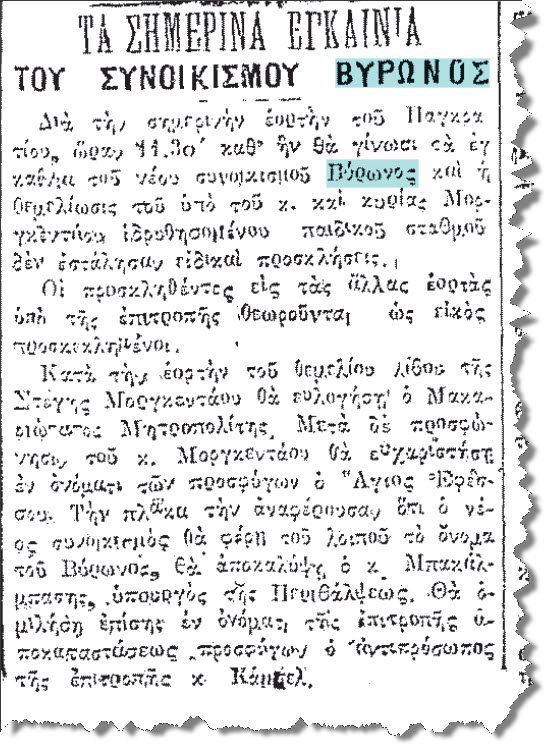 ΤΑ ΣΗΜΕΡΙΝΑ ΕΓΚΑΙΝΙΑ
ΤΟΥ ΣΥΝΟΙΚΙΣΜΟΥ ΒΥΡΩΝΟΣ
Διὰ τὴν σημερινὴν ἑορτὴν τοῦ Παγκρα
τίου, ὥραν 11.30′ καθ' ἣν θὰ γίνωσι τὰ ἐγ
καίνια τοῦ νέου συνοικισμοῦ Βύρωνος καὶ ἡ
θεμελίωσις τοῦ ὑπὸ τοῦ κ. καὶ κυρίας Μορ-
γκεντάου ἱδρυθησομένου παιδικοῦ σταθμοῦ
δὲν ἐστάλησαν εἰδικαὶ προσκλήσεις.
Οἱ προσκληθέντες εἰς τὰς ἄλλας ἑορτὰς
ὑπὸ τῆς ἐπιτροπῆς θεωροῦνται ὡς εἰκὸς
προσκεκλημένοι.
Κατὰ τὴν ἑορτὴν τοῦ θεμελίου λίθου τῆς
Στέγης Μοργκεντάου θὰ εὐλογήσῃ ὁ Μακα-
ριώτατος Μητροπολίτης. Μετὰ δὲ προσφώ-
νησιν τοῦ κ. Μοργκεντάου θὰ εὐχαριστήσῃ
ἐν ὀνόματι τῶν προσφύγων ὁ Ἅγιος Ἐφέ-
σου. Τὴν πλάκα τὴν ἀναφέρουσαν ὅτι ὁ νέ-
ος συνοικισμὸς θὰ φέρῃ τοῦ λοιποῦ τὸ ὄνομα
τοῦ Βύρωνος, θὰ ἀποκαλύψῃ ὁ κ. Μπακάλ-
μπασης, ὑπουργὸς τῆς Περιθάλψεως. Θὰ ὁ-
μιλήσῃ ἐπίσης ἐν ὀνόματι τῆς ἐπιτροπῆς ἀ-
ποκαταστάσεως προσφύγων ὁ ἀντιπρόσωπος
τῆς ἐπιτροπῆς κ. Κάμπελ.